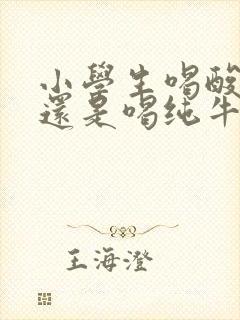 小學生喝酸
還是喝纯牛
王海澄